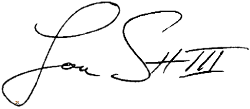 Lou SH III